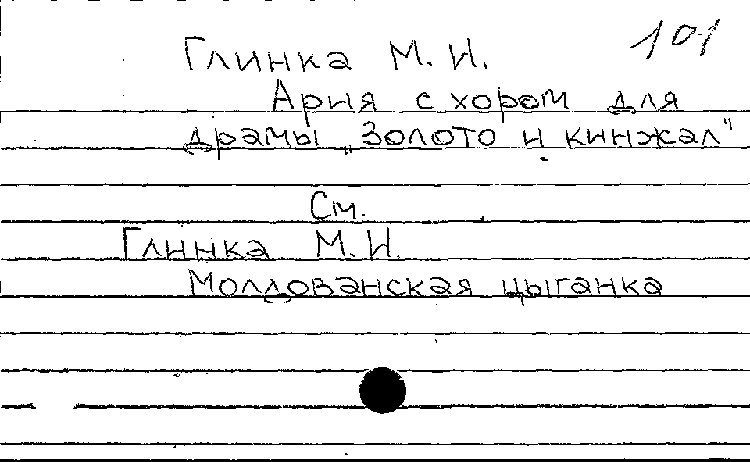 101
Глинка М. И.
Ария с хором для
драмы „Золото и кинжал"
См.
Глинка М. И.
Молдованская цыганка